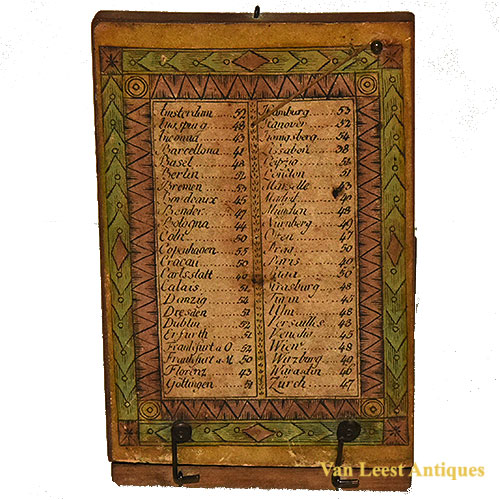 Amsterdam 52
Augspurg 48
Ancona 43
Barcellona 41
Basel 48
Berlin 52
Bremen 53
Bordeaux 45
Bender 47
Bologna 44
Cöln 50
Copenhagen 55
Cracau 50
Carlsstatt 46
Calais 51
Danzig 54
Dresden 51
Dublin 52
Erfurth 51
Frankfurt a.O. 52
Frankfurt a.M. 50
Florenz 43
Gottingen 51
Hamburg 53
Hanover 52
Konigsberg 54
Lissabon 38
Leipzig 51
London 51
Marseille 43
Madrid 40
München 48
Nürnberg 49
Ofen 47
Prag 50
Paris 48
Riga
Strasburg 48
Turin 45
Ulm 48
Versailles 48
Venedig 45
Wien 48
Warasdin 46
Zürch 47
Van Leest Antiques